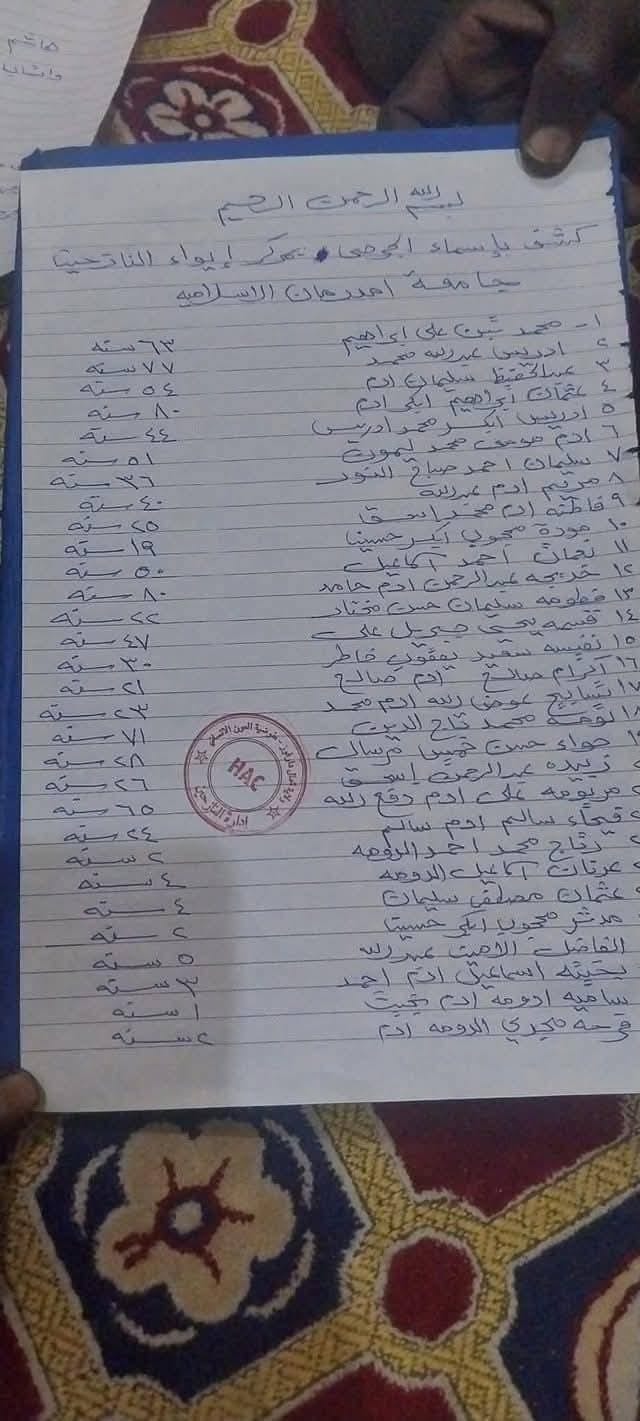 هاشم
بسم الله الرحمن الرحيم
كشف بإسماء الجرحى بمركز إيواء النازحين
جامعة امدرمان الاسلامية
١- محمد علي ابراهيم ٦٣ سنه
٢ ادريس عبدالله محمد ٧٧ سنه
٣ عبدالحفيظ سليمان ادم ٥٤ سنه
٤ عثمان ابراهيم ابكر ادم ٨٠ سنه
٥ ادريس ابكر محمد ادريس ٤٤ سنه
٦ ادم موسى محمد ٥١ سنه
٧ سليمان احمد صباح النور ٣٦ سنه
٨ مريم ادم عبدالله ٤٠ سنه
٩ فاطنه ادم محمد اسحق ٢٥ سنه
١٠ مودة محجوب ابكر ١٩ سنه
١١ احمد اسماعيل ٥٠ سنه
١٢ خديجه عبدالرحمن ادم حامد ٨٠ سنه
١٣ فطومه سليمان حسن مختار ٢٢ سنه
١٤ قسمه يحيى جبريل علي ٤٧ سنه
١٥ نفيسه سعيد يعقوب خاطر ٣٠ سنه
١٦ اكرام صالح ادم صالح ٢١ سنه
١٧ تسابيح عوض الله ادم محمد ٢٣ سنه
١٨ محمد تاج الدين ٧١ سنه
حواء حسن خميس مرسال ٢٨ سنه
زبيده عبدالرحمن إسحق ٢٦ سنه
مريومه علي ادم دفع الله ٦٥ سنه
سالم ادم سالم ٢٤ سنه
رتاج محمد احمد الدومه ٢ سنه
اسماعيل الدومه ٤ سنه
عثمان مصطفى سليمان ٤ سنه
مدثر محجوب ابكر ٢ سنه
الفاضل الامين عبدالله ٥ سنه
بخيته اسماعيل ادم احمد ٣ سنه
ساميه ادومه ادم بخيت ١ سنه
فرحه مجدي الدومه ادم ٢ سنه
مفوضية العون الانساني
HAC
إدارة النازحين